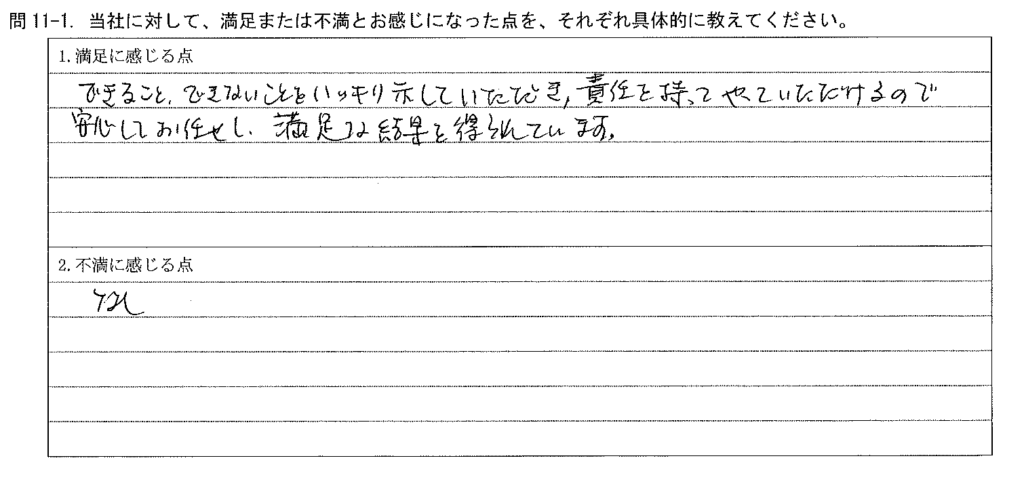 問11-1. 当社に対して、満足または不満とお感じになった点を、それぞれ具体的に教えてください。
1.満足に感じる点
できること、できないことをハッキリ示していただき、責任を持ってやっていただけるので
安心してお任せし、満足な結果を得られています。
2.不満に感じる点
なし